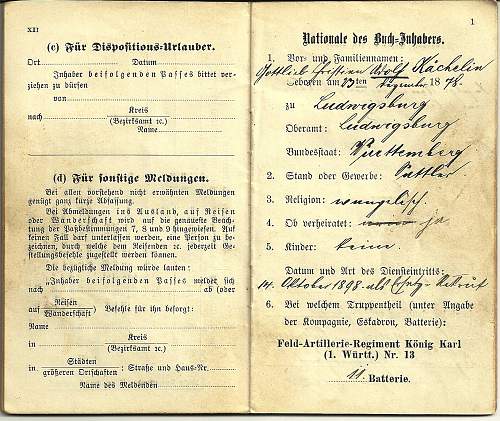 XII
(c) Für Dispositions-Urlauber.
Ort Datum
Inhaber beifolgenden Passes bittet ver-
ziehen zu dürfen
von
nach Kreis
(Bezirksamt ꝛc.)
Name
(d) Für sonstige Meldungen.
Bei allen vorstehend nicht erwähnten Meldungen
genügt ganz kurze Abfassung.
Bei Abmeldungen ins Ausland, auf Reisen
oder Wanderschaft wird auf die genaueste Beach-
tung der Paßbestimmungen 7, 8 und 9 hingewiesen. Auf
keinen Fall darf unterlassen werden, eine Person zu be-
zeichnen, durch welche dem Reisenden ꝛc. jederzeit Ge-
stellungsbefehle zugestellt werden können.
Die bezügliche Meldung würde lauten:
„Inhaber beifolgenden Passes meldet sich
nach ab (oder
auf Reisen
Wanderschaft) Befehle für ihn besorgt:
Name
in Kreis
(Bezirksamt ꝛc.)
in Städten
größeren Ortschaften : Straße und Haus-Nr.
Name des Meldenden
1
Nationale des Buch-Inhabers.
1. Vor- und Familiennamen:
Gottlieb Christian Adolf Kächelin
Geboren am 23ten Dezember 1878.
zu Ludwigsburg
Oberamt: Ludwigsburg
Bundesstaat: Württemberg
2. Stand oder Gewerbe: Sattler
3. Religion: evangelisch.
4. Ob verheiratet: ja
5. Kinder: keine.
Datum und Art des Diensteintritts:
14. Oktober 1898 als Ersatz-Rekrut
6. Bei welchem Truppentheil (unter Angabe
der Kompagnie, Eskadron, Batterie):
Feld-Artillerie-Regiment König Karl
(1. Württ.) Nr. 13
11. Batterie.